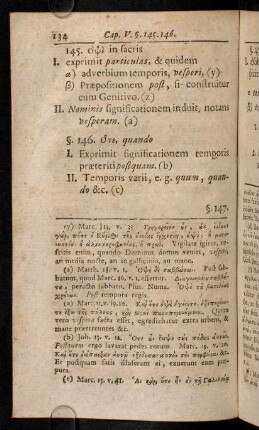 134 Cap. V. §. 145. 146.
145. Οψὲ in sacris
I. exprimit particulas, & quidem
α) adverbium temporis, vesperi, (y)
β) Præpositionem post, si construitur
cum Genitivo. (z)
II. Nominis significationem induit, notans
vesperam. (a)
§. 146. Ὅτε, quando
I. Exprimit significationem temporis
præteriti postquam. (b)
II. Temporis varii, e. g. quum, quan-
do &c. (c)
§. 147.
(y) Marc. 13. v. 35. Γρηγορεῖτε
Vigilate igitur, ne-
scitis enim, quando Dominus domus veniet,
an media nocte, an in gallicinio, an mane.
(z) Matth. 28. v. 1. Ὀψὲ δὲ σαββάτων. Post sab-
batum, quod Marc. 16. v. 1. effertur.
peracto sabbato. Plut. Numa.
Post tempora regis.
(a) Marc. 11. v. 19.
vespera facta esset, egrediebatur extra urbem, &
mane prætereuntes &c.
(b) Joh. 13. v. 12. Ὅτε οὖν ἔνιψε τοὺς πόδας αὐτῶν.
Postquam ergo lavarat pedes eorum. Marc. 15. v. 20.
Καὶ ὅτε ἐνέπαιξαν αὐτῷ ἐξέδυσαν αὐτὸν τὴν πορφύραν &c.
Et postquam satis illusissent ei, exuerunt eum pur-
pura.
(c) Marc. 15. v. 41. Αἳ καὶ, ὅτε ἦν ἐν τῇ Γαλιλαίᾳ